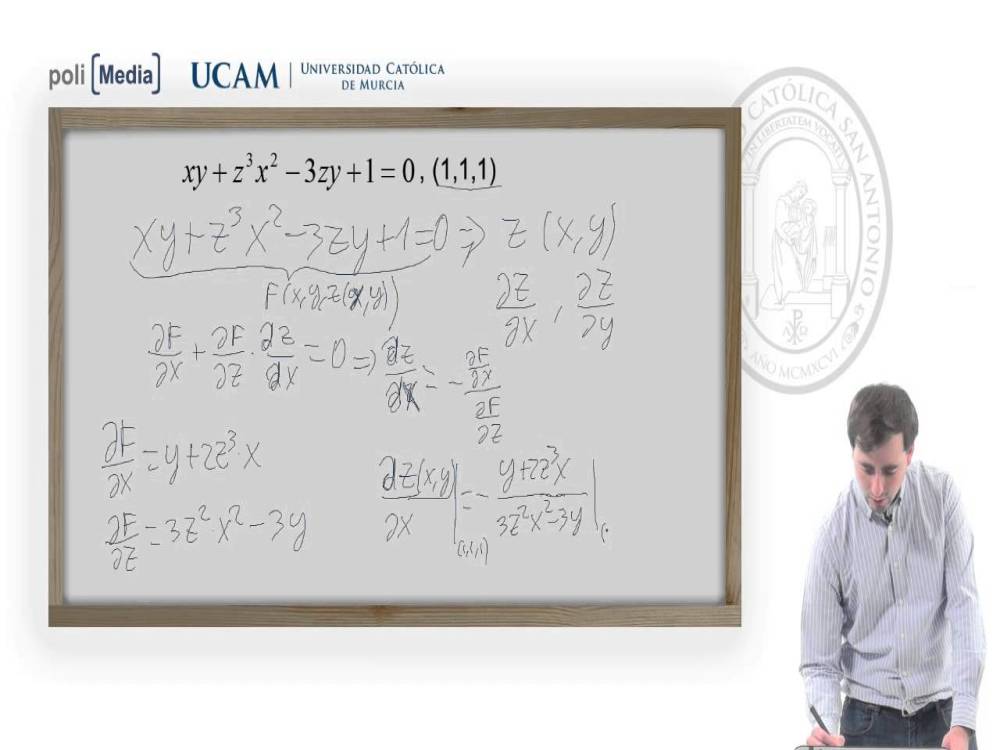 poli [Media] UCAM | UNIVERSIDAD CATÓLICA DE MURCIA
CATÓLICA SAN ANTONIO
IN LIBERTATEM VOCATI
AÑO MCMXCVI
xy + z³x² − 3zy + 1 = 0, (1,1,1)
xy + z³x² − 3zy + 1 = 0 ⇒ z(x,y)
F(x,y,z(x,y))
∂z/∂x , ∂z/∂y
∂F/∂x + ∂F/∂z · ∂z/∂x = 0 ⇒ ∂z/∂x = − (∂F/∂x)/(∂F/∂z)
∂F/∂x = y + 2z³·x
∂F/∂z = 3z²·x² − 3y
∂z(x,y)/∂x |(1,1,1) = − (y + 2z³x)/(3z²x² − 3y) |(